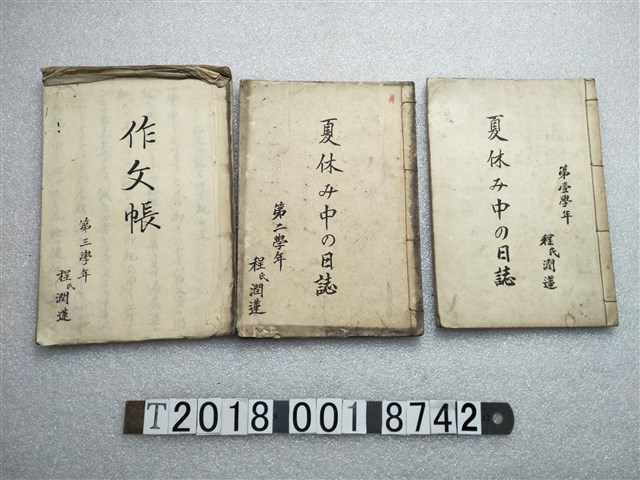 作文帳
第三學年
程氏潤蓮
夏休み中の日誌
第二學年
程氏潤蓮
夏休み中の日誌
第壹學年
程氏潤蓮
T2018 001 8742